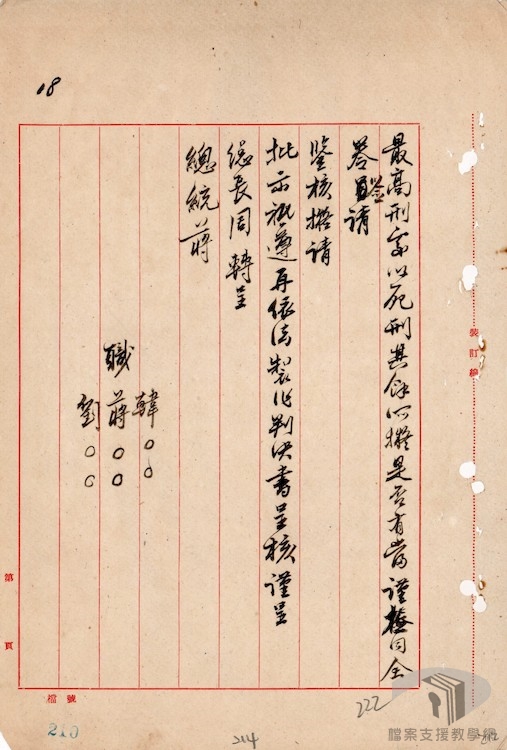 18
最高刑處以死刑其餘如擬是否有當謹檢同全
卷簽請
鑒核擬請
批示祇遵再依法製作判決書呈核謹呈
總長周 轉呈
總統蔣
韓○○
職蔣○○
劉○○
裝訂線
第 頁
檔號
210
214
222
檔案支援教學網